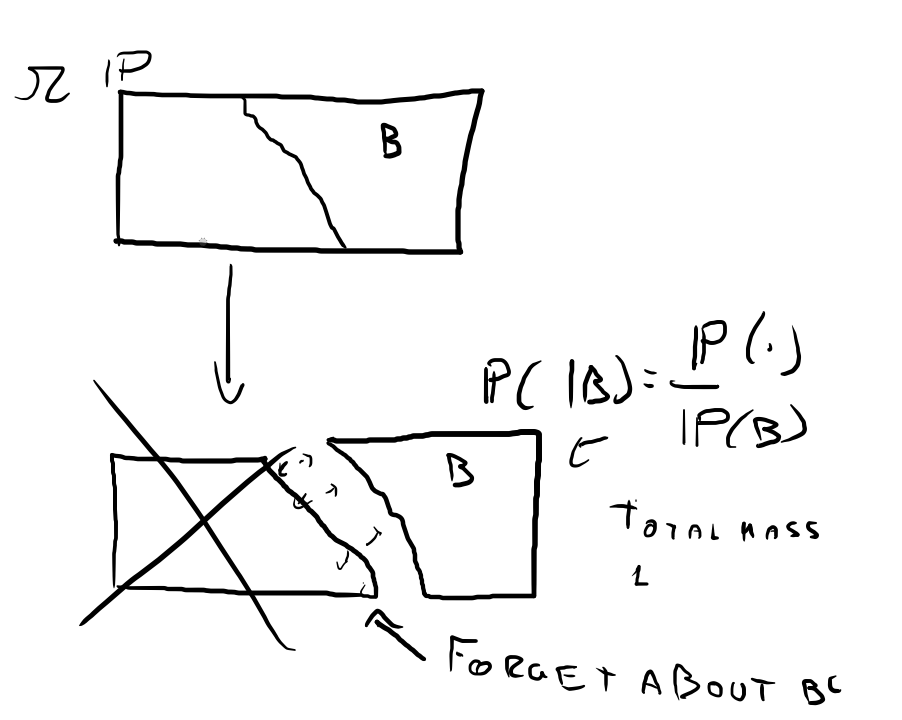 Ω ℙ
B
ℙ( |B) = ℙ(·)
ℙ(B)
B
TOTAL MASS
1
FORGET ABOUT Bᶜ